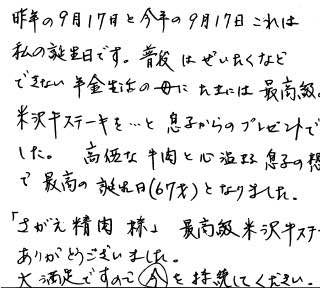 昨年の9月17日と今年の9月17日これは
私の誕生日です。普段はぜいたくなど
できない年金生活の母にたまには最高級
米沢牛ステーキを…と息子からのプレゼントで
した。高価な牛肉と心溢る息子の想
で最高の誕生日(67才)となりました。
「さがえ精肉様」最高級米沢牛ステー
ありがとうございました。
大満足ですので今を持続してください。